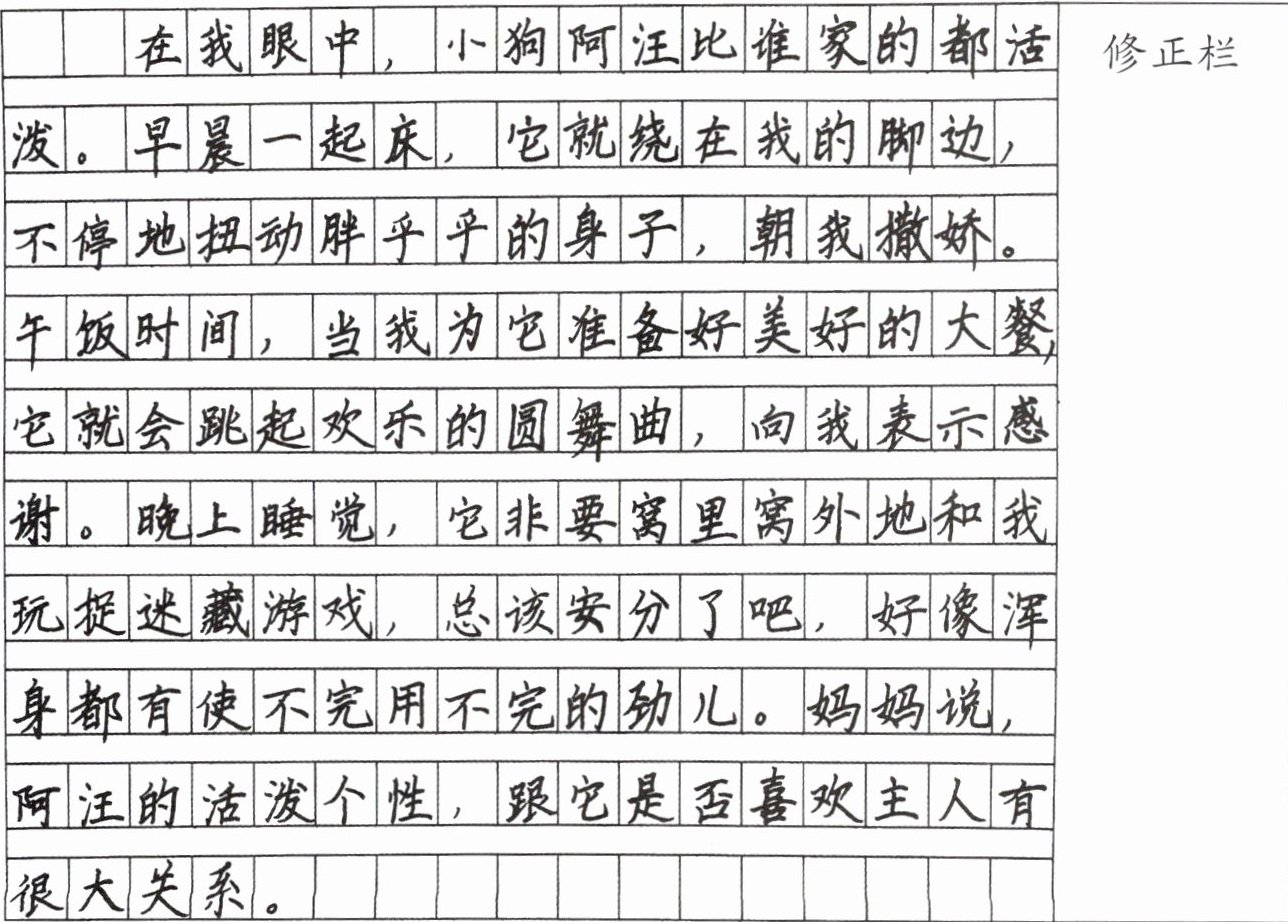 在我眼中，小狗阿汪比谁家的都活
修正栏
泼。早晨一起床，它就绕在我的脚边，
不停地扭动胖乎乎的身子，朝我撒娇。
午饭时间，当我为它准备好美好的大餐，
它就会跳起欢乐的圆舞曲，向我表示感
谢。晚上睡觉，它非要窝里窝外地和我
玩捉迷藏游戏，总该安分了吧，好像浑
身都有使不完用不完的劲儿。妈妈说，
阿汪的活泼个性，跟它是否喜欢主人有
很大关系。